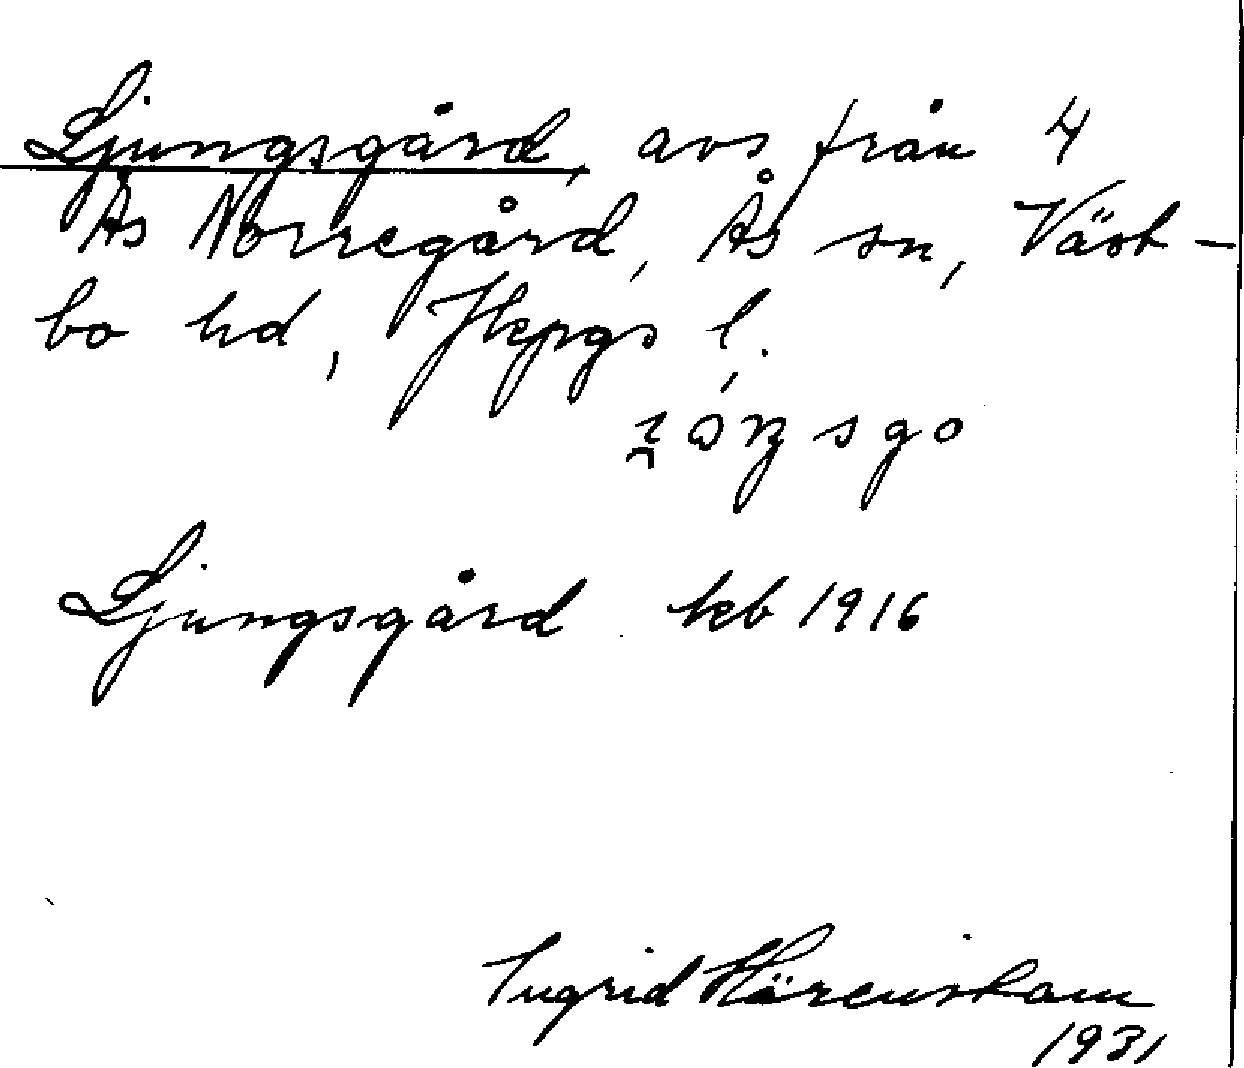 Ljungsgård, avs från 4
Ås Norregård, Ås sn, Väst-
bo hd, Jkpgs l.
Ljungsgård keb 1916
Ingrid Härenstam
1931